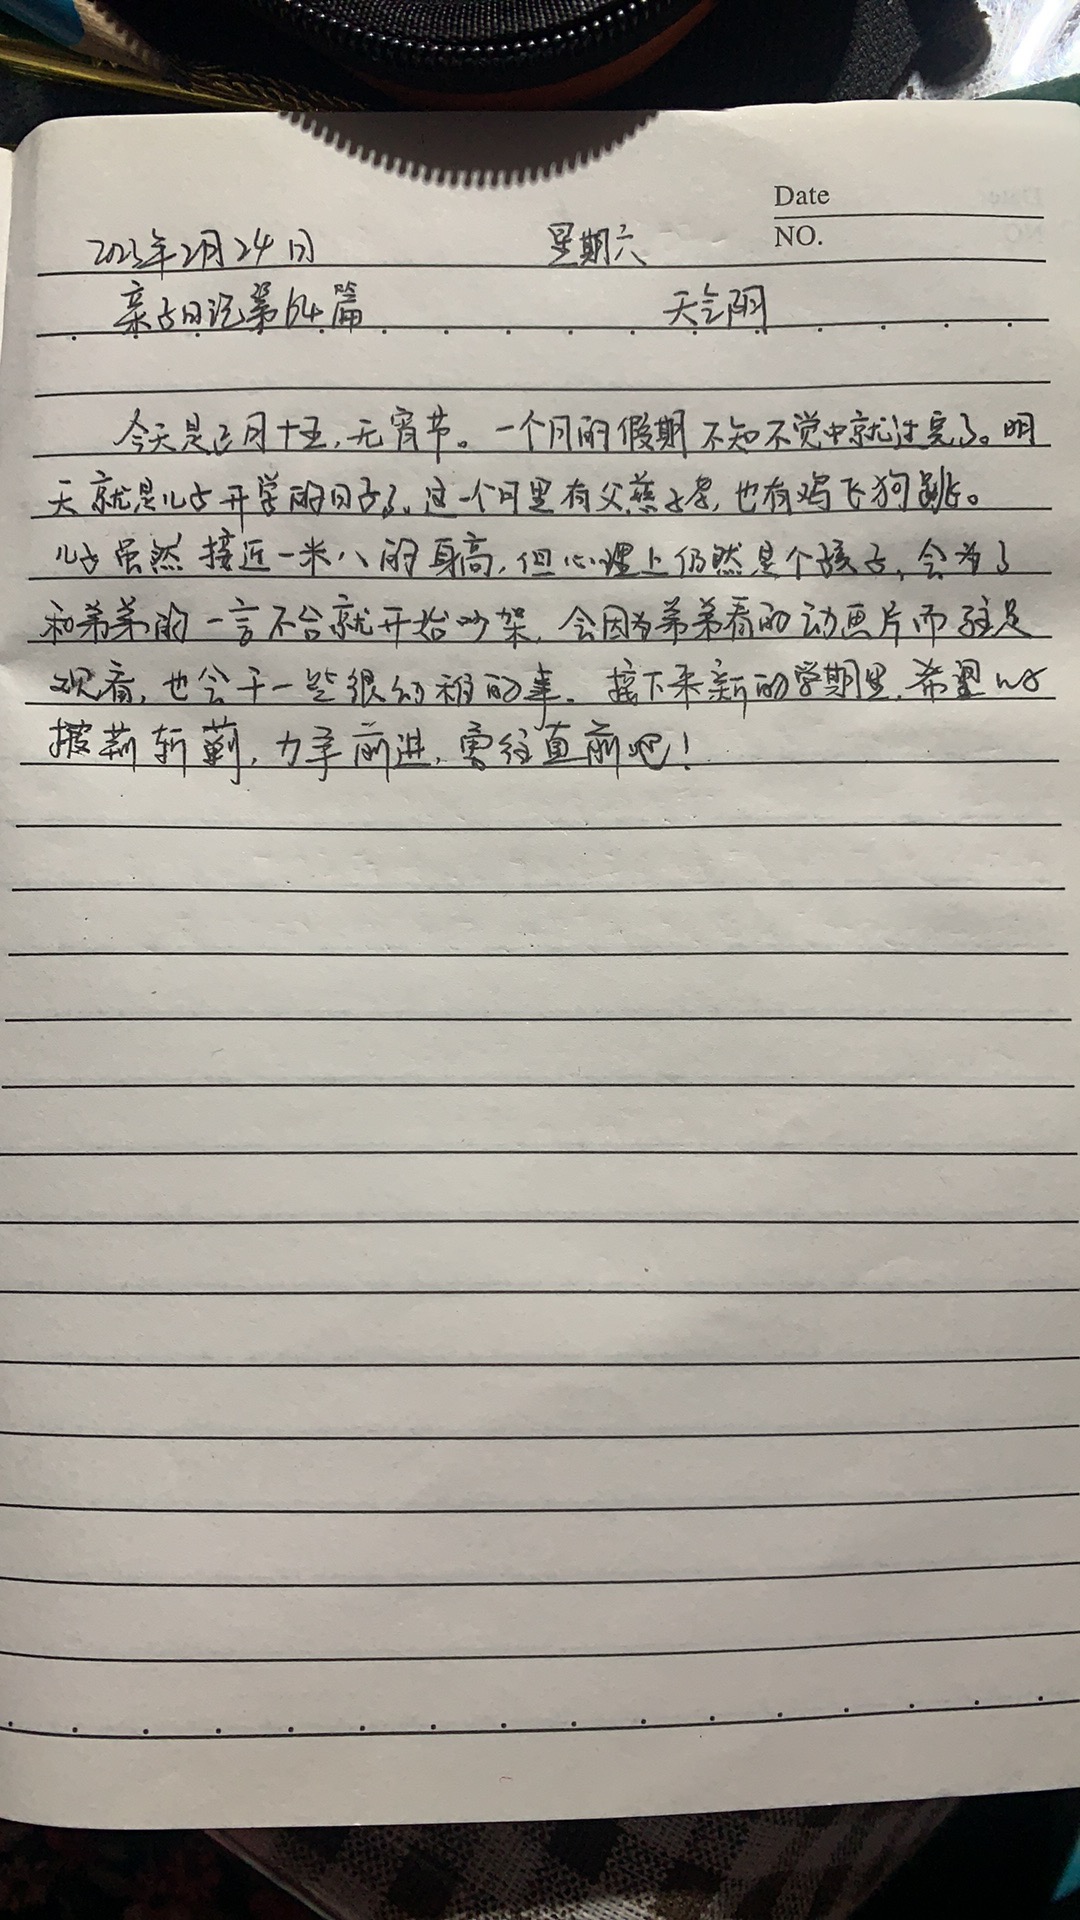 Date
NO.
2023年2月24日 星期六
亲子日记第64篇 天气阴
今天是正月十五，元宵节。一个月的假期不知不觉中就过完了。明
天就是儿子开学的日子了。这一个月里有父慈子孝，也有鸡飞狗跳。
儿子虽然接近一米八的身高，但心理上仍然是个孩子，会为了
和弟弟的一言不合就开始吵架，会因为弟弟看的动画片而驻足
观看，也会干一些很幼稚的事。接下来新的学期里，希望儿子
披荆斩蓟，力争前进，勇往直前吧！